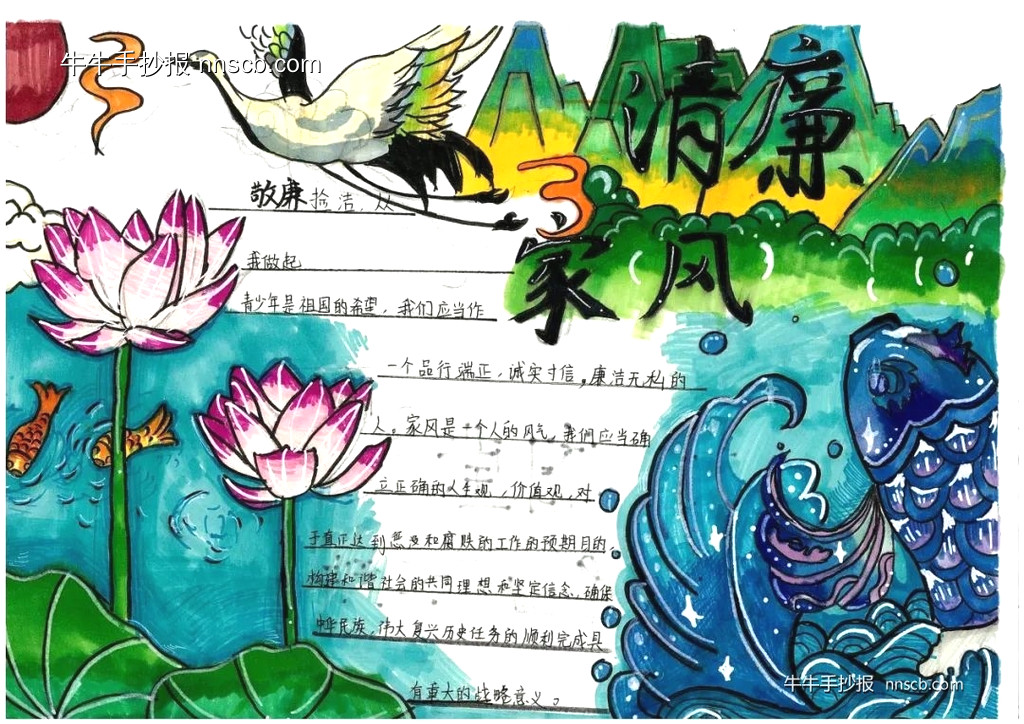 牛牛手抄报 nnscb.com
清廉
家风
敬廉捡洁，从
我做起
青少年是祖国的希望，我们应当作
一个品行端正，诚实寸信，廉洁无私的
人。家风是一个人的风气，我们应当确
立正确的人生观，价值观，对
于真正达到惩及和腐败的工作的预期目的，
构建和谐社会的共同理想和坚定信念，确保
中华民族，伟大复兴历史任务的顺利完成具
有重大的战略意义。
牛牛手抄报 nnscb.com